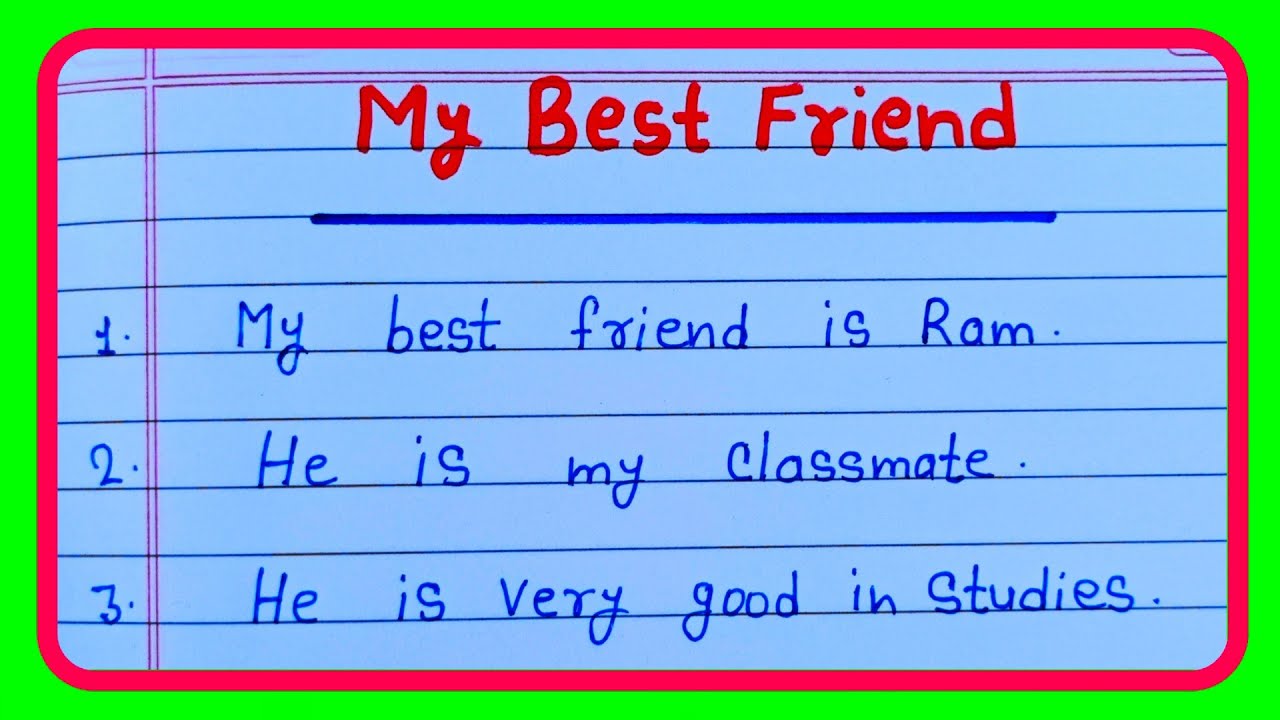 My Best Friend
1. My best friend is Ram.
2. He is my classmate.
3. He is very good in Studies.